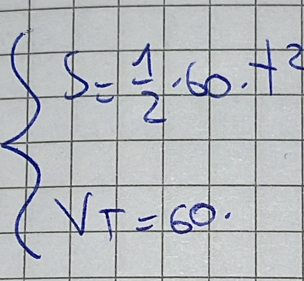 S = 1/2 · 60 · t²
VT = 60 ·